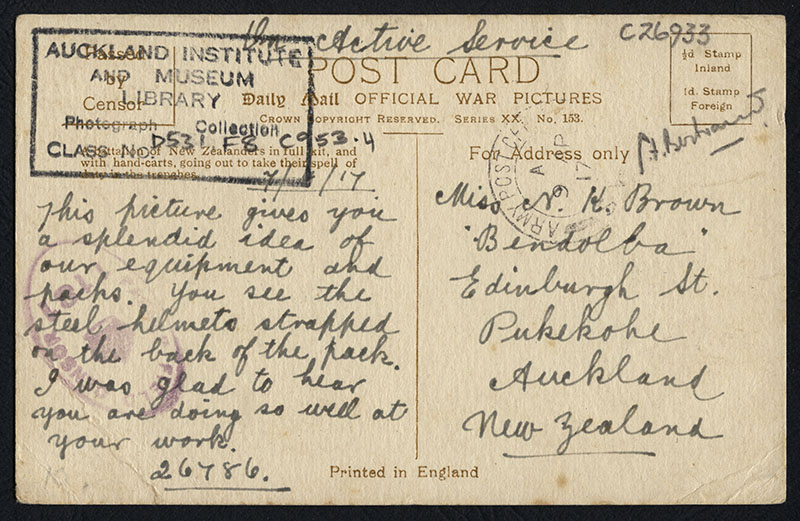 On Active Service
C26933
AUCKLAND INSTITUTE
AND MUSEUM
LIBRARY
Photograph Collection
CLASS NO. D531 F8 C953.4
Passed
by
Censor.
POST CARD
Daily Mail OFFICIAL WAR PICTURES
CROWN COPYRIGHT RESERVED. SERIES XX. No. 153.
½d Stamp
Inland
1d. Stamp
Foreign
A battalion of New Zealanders in full kit, and
with hand-carts, going out to take their spell of
duty in the trenches.
For Address only
ARMY POST OFFICE
17
/17
This picture gives you
a splendid idea of
our equipment and
packs. You see the
steel helmets strapped
on the back of the pack.
I was glad to hear
you are doing so well at
your work.
26786.
Miss N. K. Brown
"Bendolba"
Edinburgh St.
Pukekohe
Auckland
New Zealand
CENSOR
Printed in England